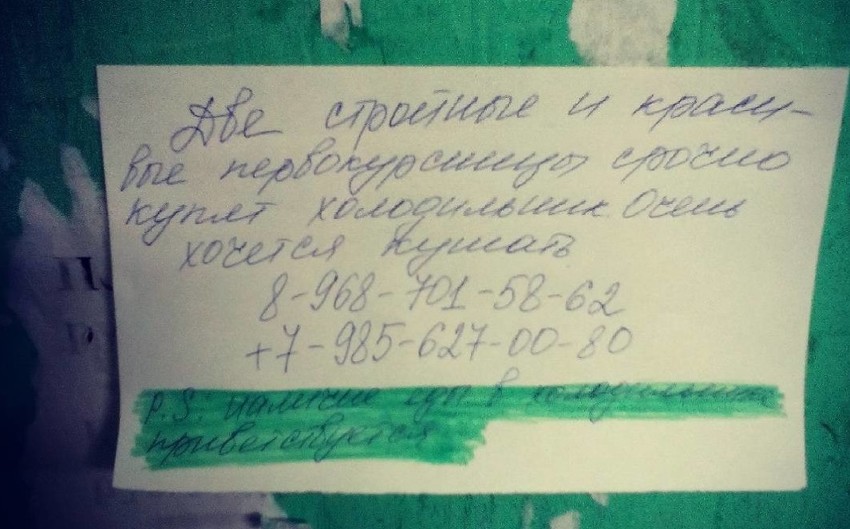 Две стройные и краси-
вые первокурсницы срочно
купят холодильник. Очень
хочется кушать
8-968-701-58-62
+7-985-627-00-80
P.S: наличие еды в холодильнике
приветствуется